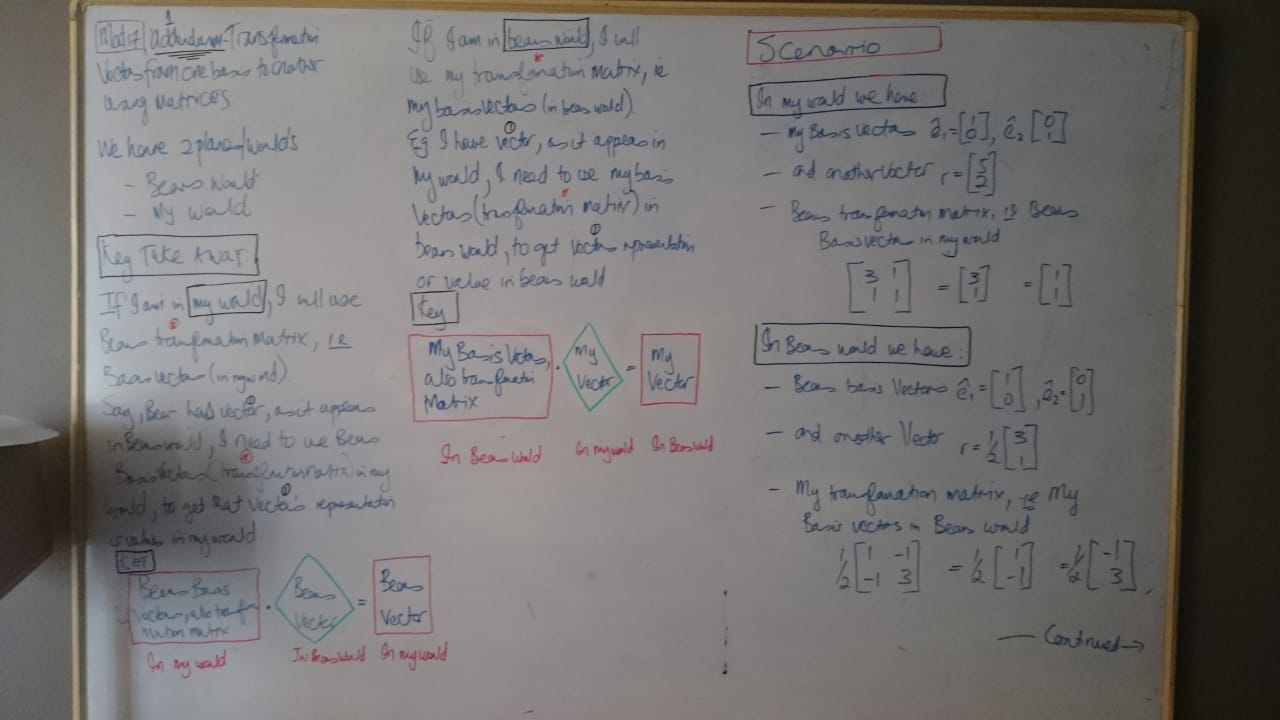 Mod17 Addendum 1 - Transformation
Vectors from one basis to another
using Matrices
We have 2 planes/worlds
- Bears World
- My World
Key Take Away:
If I am in my world, I will use
Bears transformation Matrix, ie
Basis vectors (in my world).
Say, Bear has vector, as it appears
in Bears world, I need to use Bears
Basis Vectors (transformation matrix) in my
world, to get that vectors representation
or value in my world.
Key
Bears Basis
Vectors, also transfor
mation matrix
.
Bears
Vector
=
Bears
Vector
In my world
In Bears World
In my world
If I am in bears world, I will
use my transformation matrix, ie
my basis vectors (in bears world).
Eg I have vector, as it appears in
my world, I need to use my basis
vectors (transformation matrix) in
bears world, to get vectors representation
or value in bears world
Key
My Basis Vectors,
also transformation
Matrix
.
My
Vector
=
My
Vector
In Bears World
In my world
In Bears World
Scenario
In my world we have:
- My Basis Vectors ê₁=[1 0], ê₂ [0 1]
- and another Vector r = [5 2]
- Bears transformation matrix, ie Bears
Basis vectors in my world
[3 1 1 1] = [3 1] = [1 1]
In Bears world we have:
- Bears basis Vectors ê₁=[1 0], ê₂=[0 1]
- and another Vector r = 1/2 [3 1]
- My transformation matrix, ie My
Basis vectors in Bears World
1/2 [1 -1 -1 3] = 1/2 [1 -1] = 1/2 [-1 3]
— Continued →